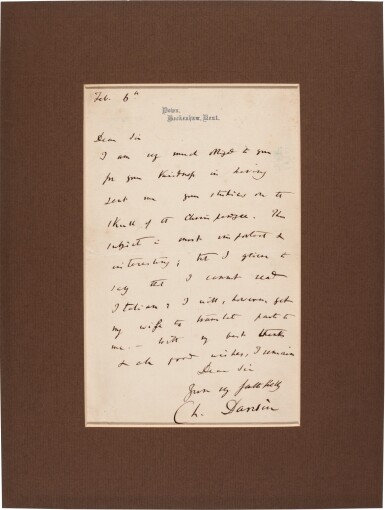 Feb. 6th
Down,
Beckenham, Kent.
Dear Sir
I am very much obliged to you
for your kindness in having
sent me your studies on the
skull of the
subject is most important &
interesting; but I grieve to
say that I cannot read
Italian; I will, however, get
my wife to translate parts to
me. — With my best thanks
& all good wishes, I remain
Dear Sir
Yours very faithfully
Ch. Darwin